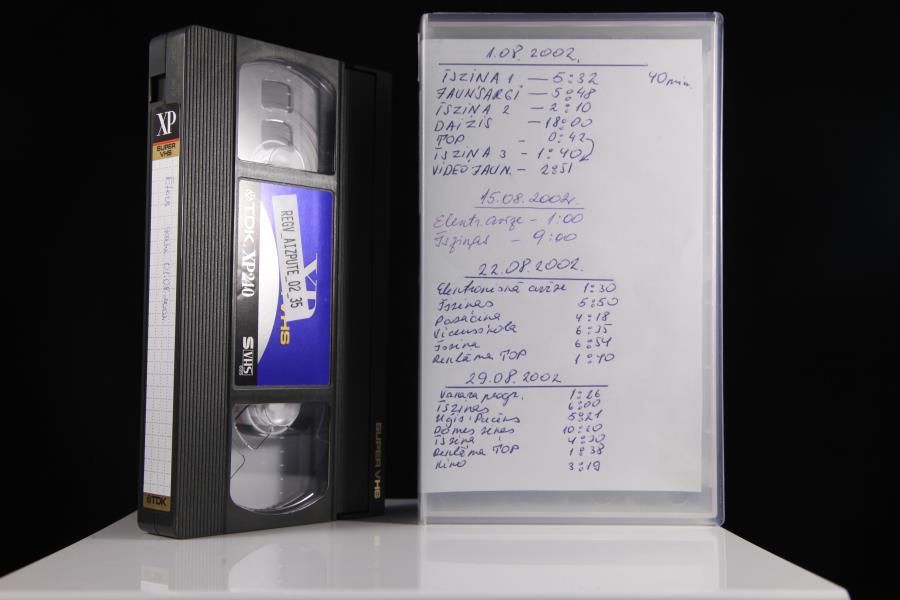 XP
SUPER
VHS
TDK
TDK XP240
REGV_AIZPUTE_02_35
XP
VHS
S VHS
SUPER VHS
1.08.2002.
ĪSZIŅA 1 — 5:32 40 min.
JAUNSARGI — 5:48
ĪSZIŅA 2 — 2:10
DAIZIS — 18:00
TOP - 0:42
ĪSZIŅA 3 - 1:40
VIDEO JAUN. - 2:51
15.08.2002.
Elektr. avīze - 1:00
Īsziņas - 9:00
22.08.2002.
Elektroniskā avīze 1:30
Īsziņas 5:50
Pasāciņa 4:18
6:35
Īsziņa 6:54
Reklāma TOP 1:10
29.08.2002
Vakara progr. 1:26
Īsziņas 6:00
5:21
Domes ziņas 10:20
Īsziņa 4:30
Reklāma TOP 1:38
Kino 3:19